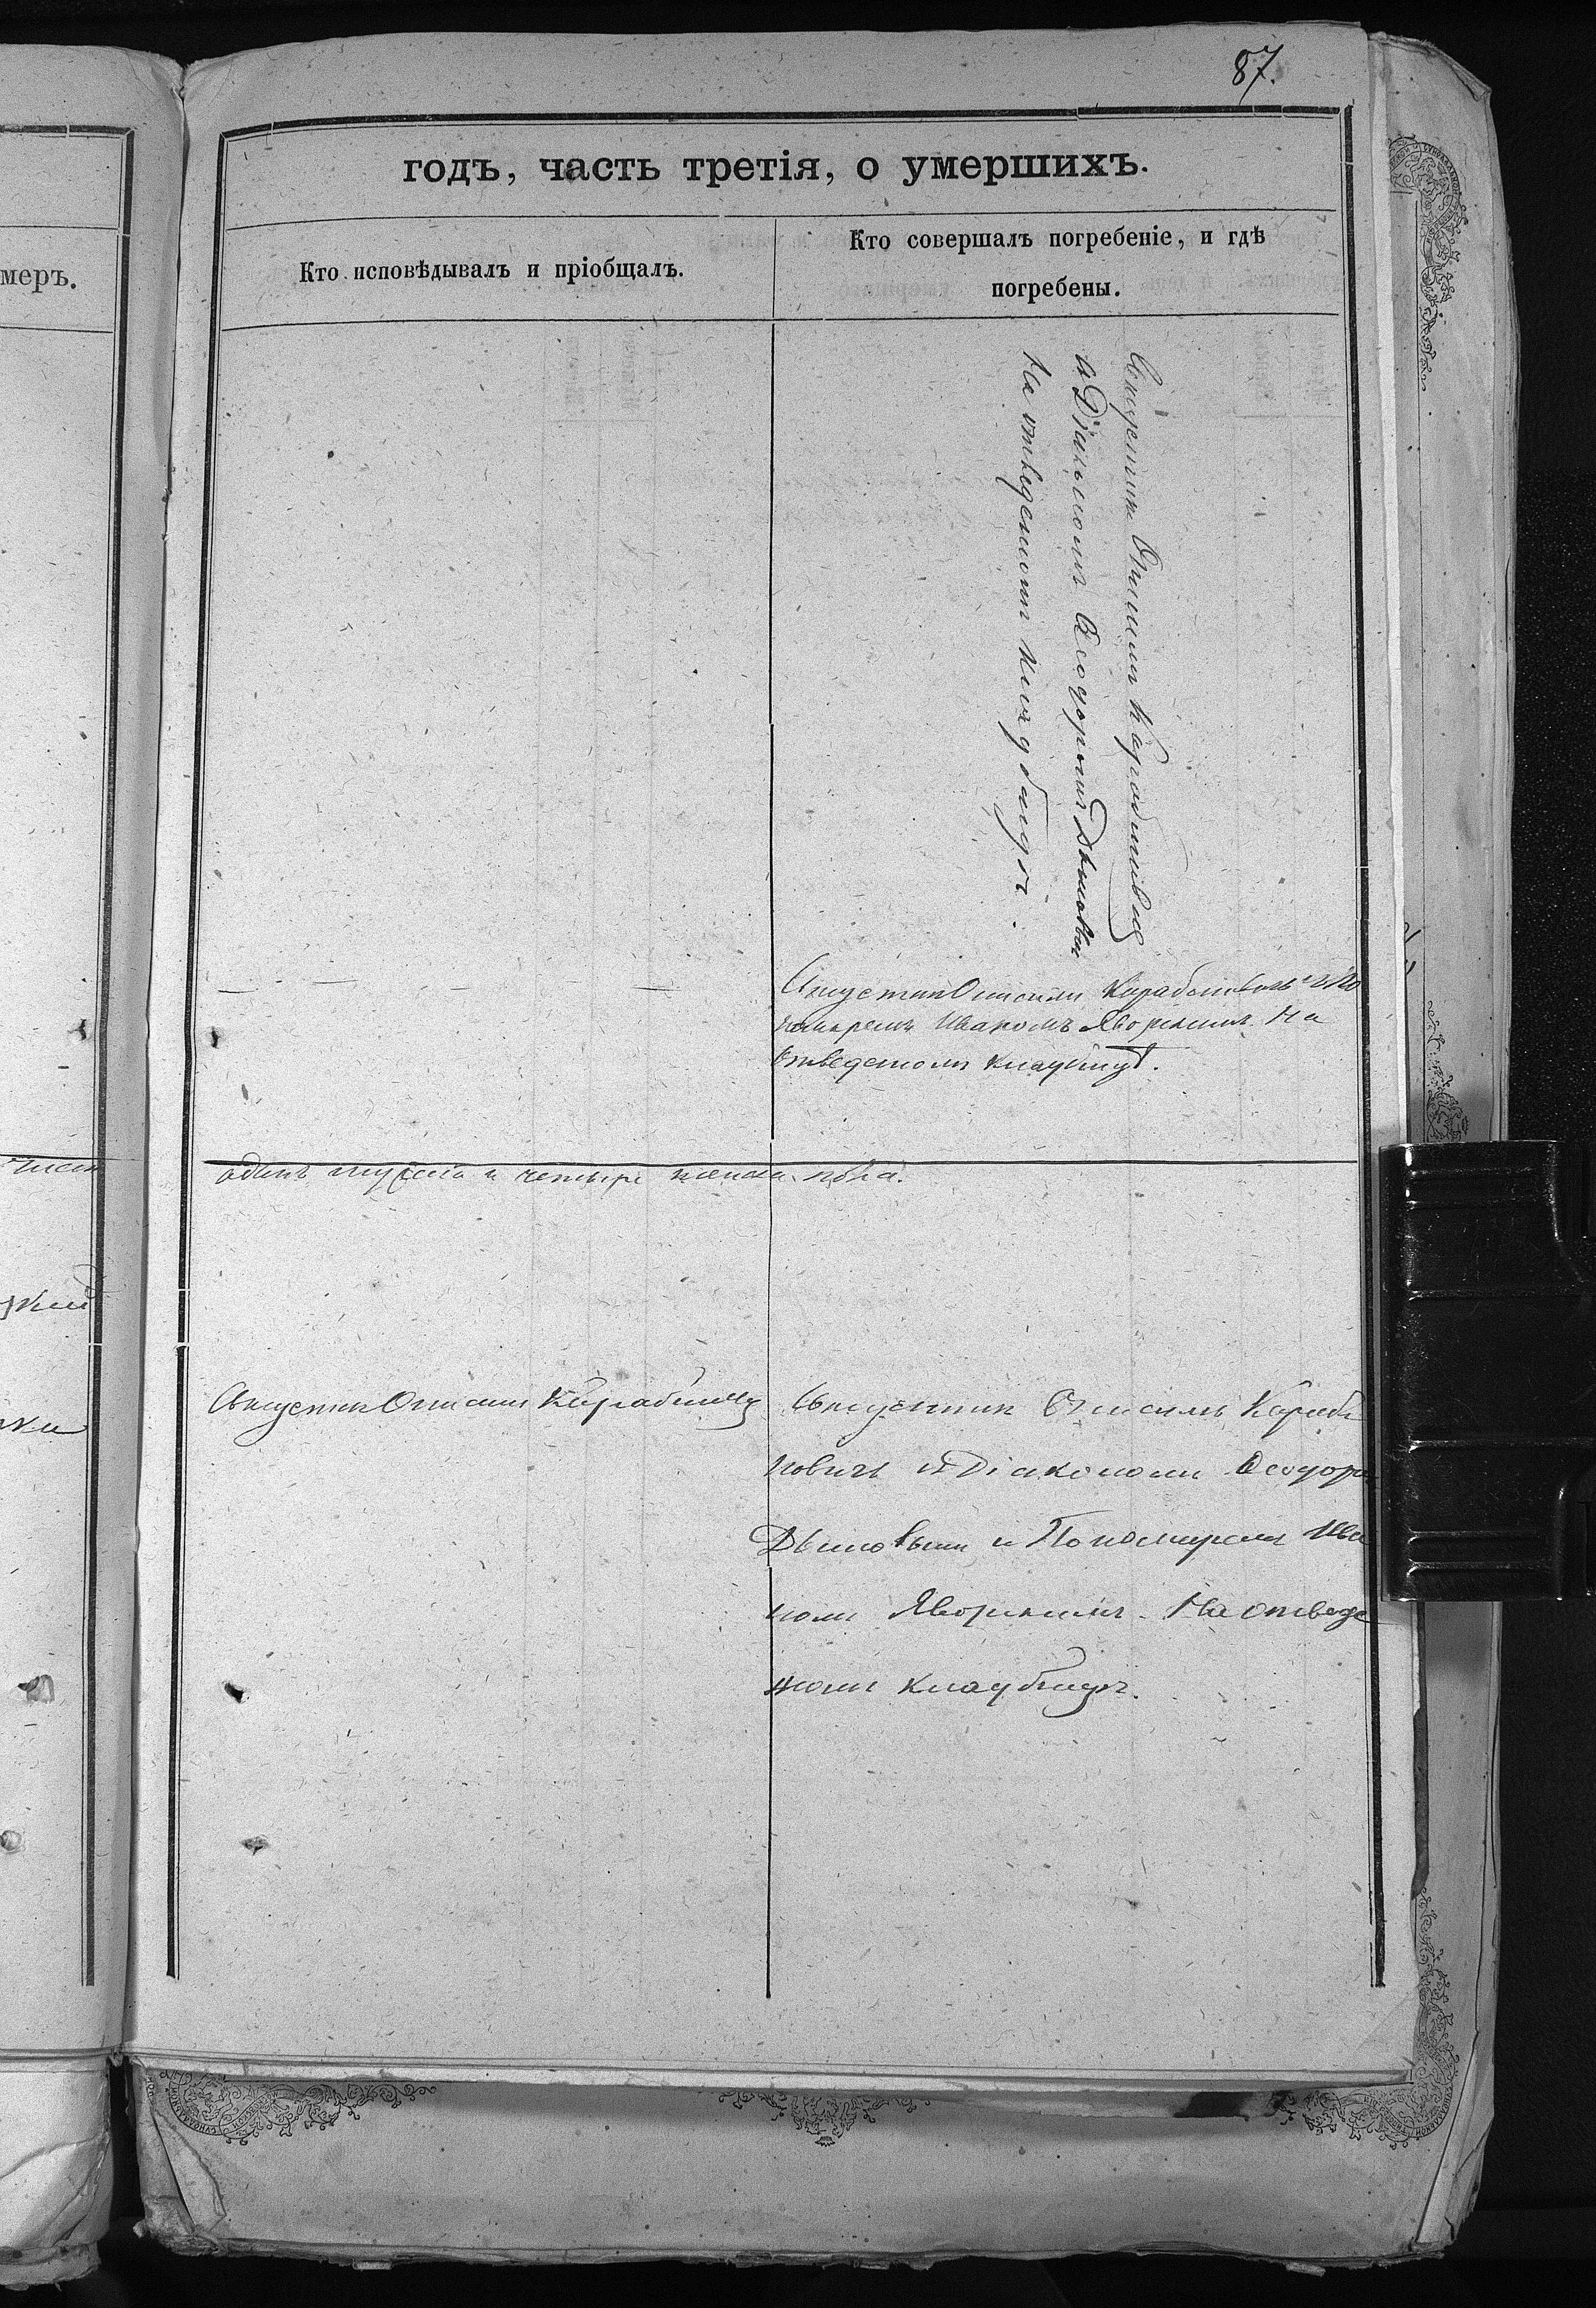 87.
годъ, часть третія, о умершихъ.
меръ.
Кто исповѣдывалъ и пріобщалъ.
Кто совершалъ погребеніе, и гдѣ
погребены.
Священник Онисимъ Карабиневич
и Діакономъ Ѳеодоромъ Дымовым
На отведеномъ кладбищѣ.
Священник Онисимъ Карабиневичъ и По
номаремъ Иваномъ Яворским На
отведеномъ кладбищѣ.
один мужеска и четыре женска пола.
Священник Онисим Карабиневич
Священник Онисимъ Караби
невичъ и Діакономъ Ѳеодором
Дымовым и Пономаремъ Ива
номъ Яворскимъ. На отведе
номъ кладбищѣ.